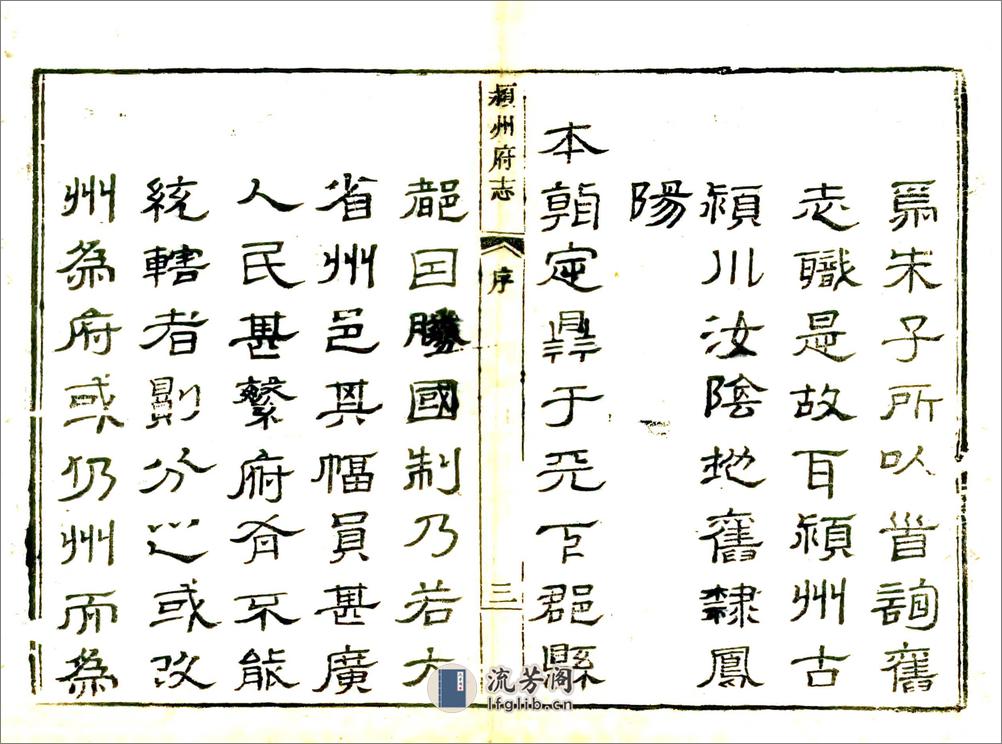 爲朱子所以首詢舊
志職是故耳潁州古
潁川汝陰地舊隸鳳
陽
本朝定鼎于天下郡縣
潁州府志
序
三
都因勝國制乃若大
省州邑其幅員甚廣
人民甚繁府有不能
統轄者則分之或改
州為府或仍州而為
流芳阁
lfglib.cn